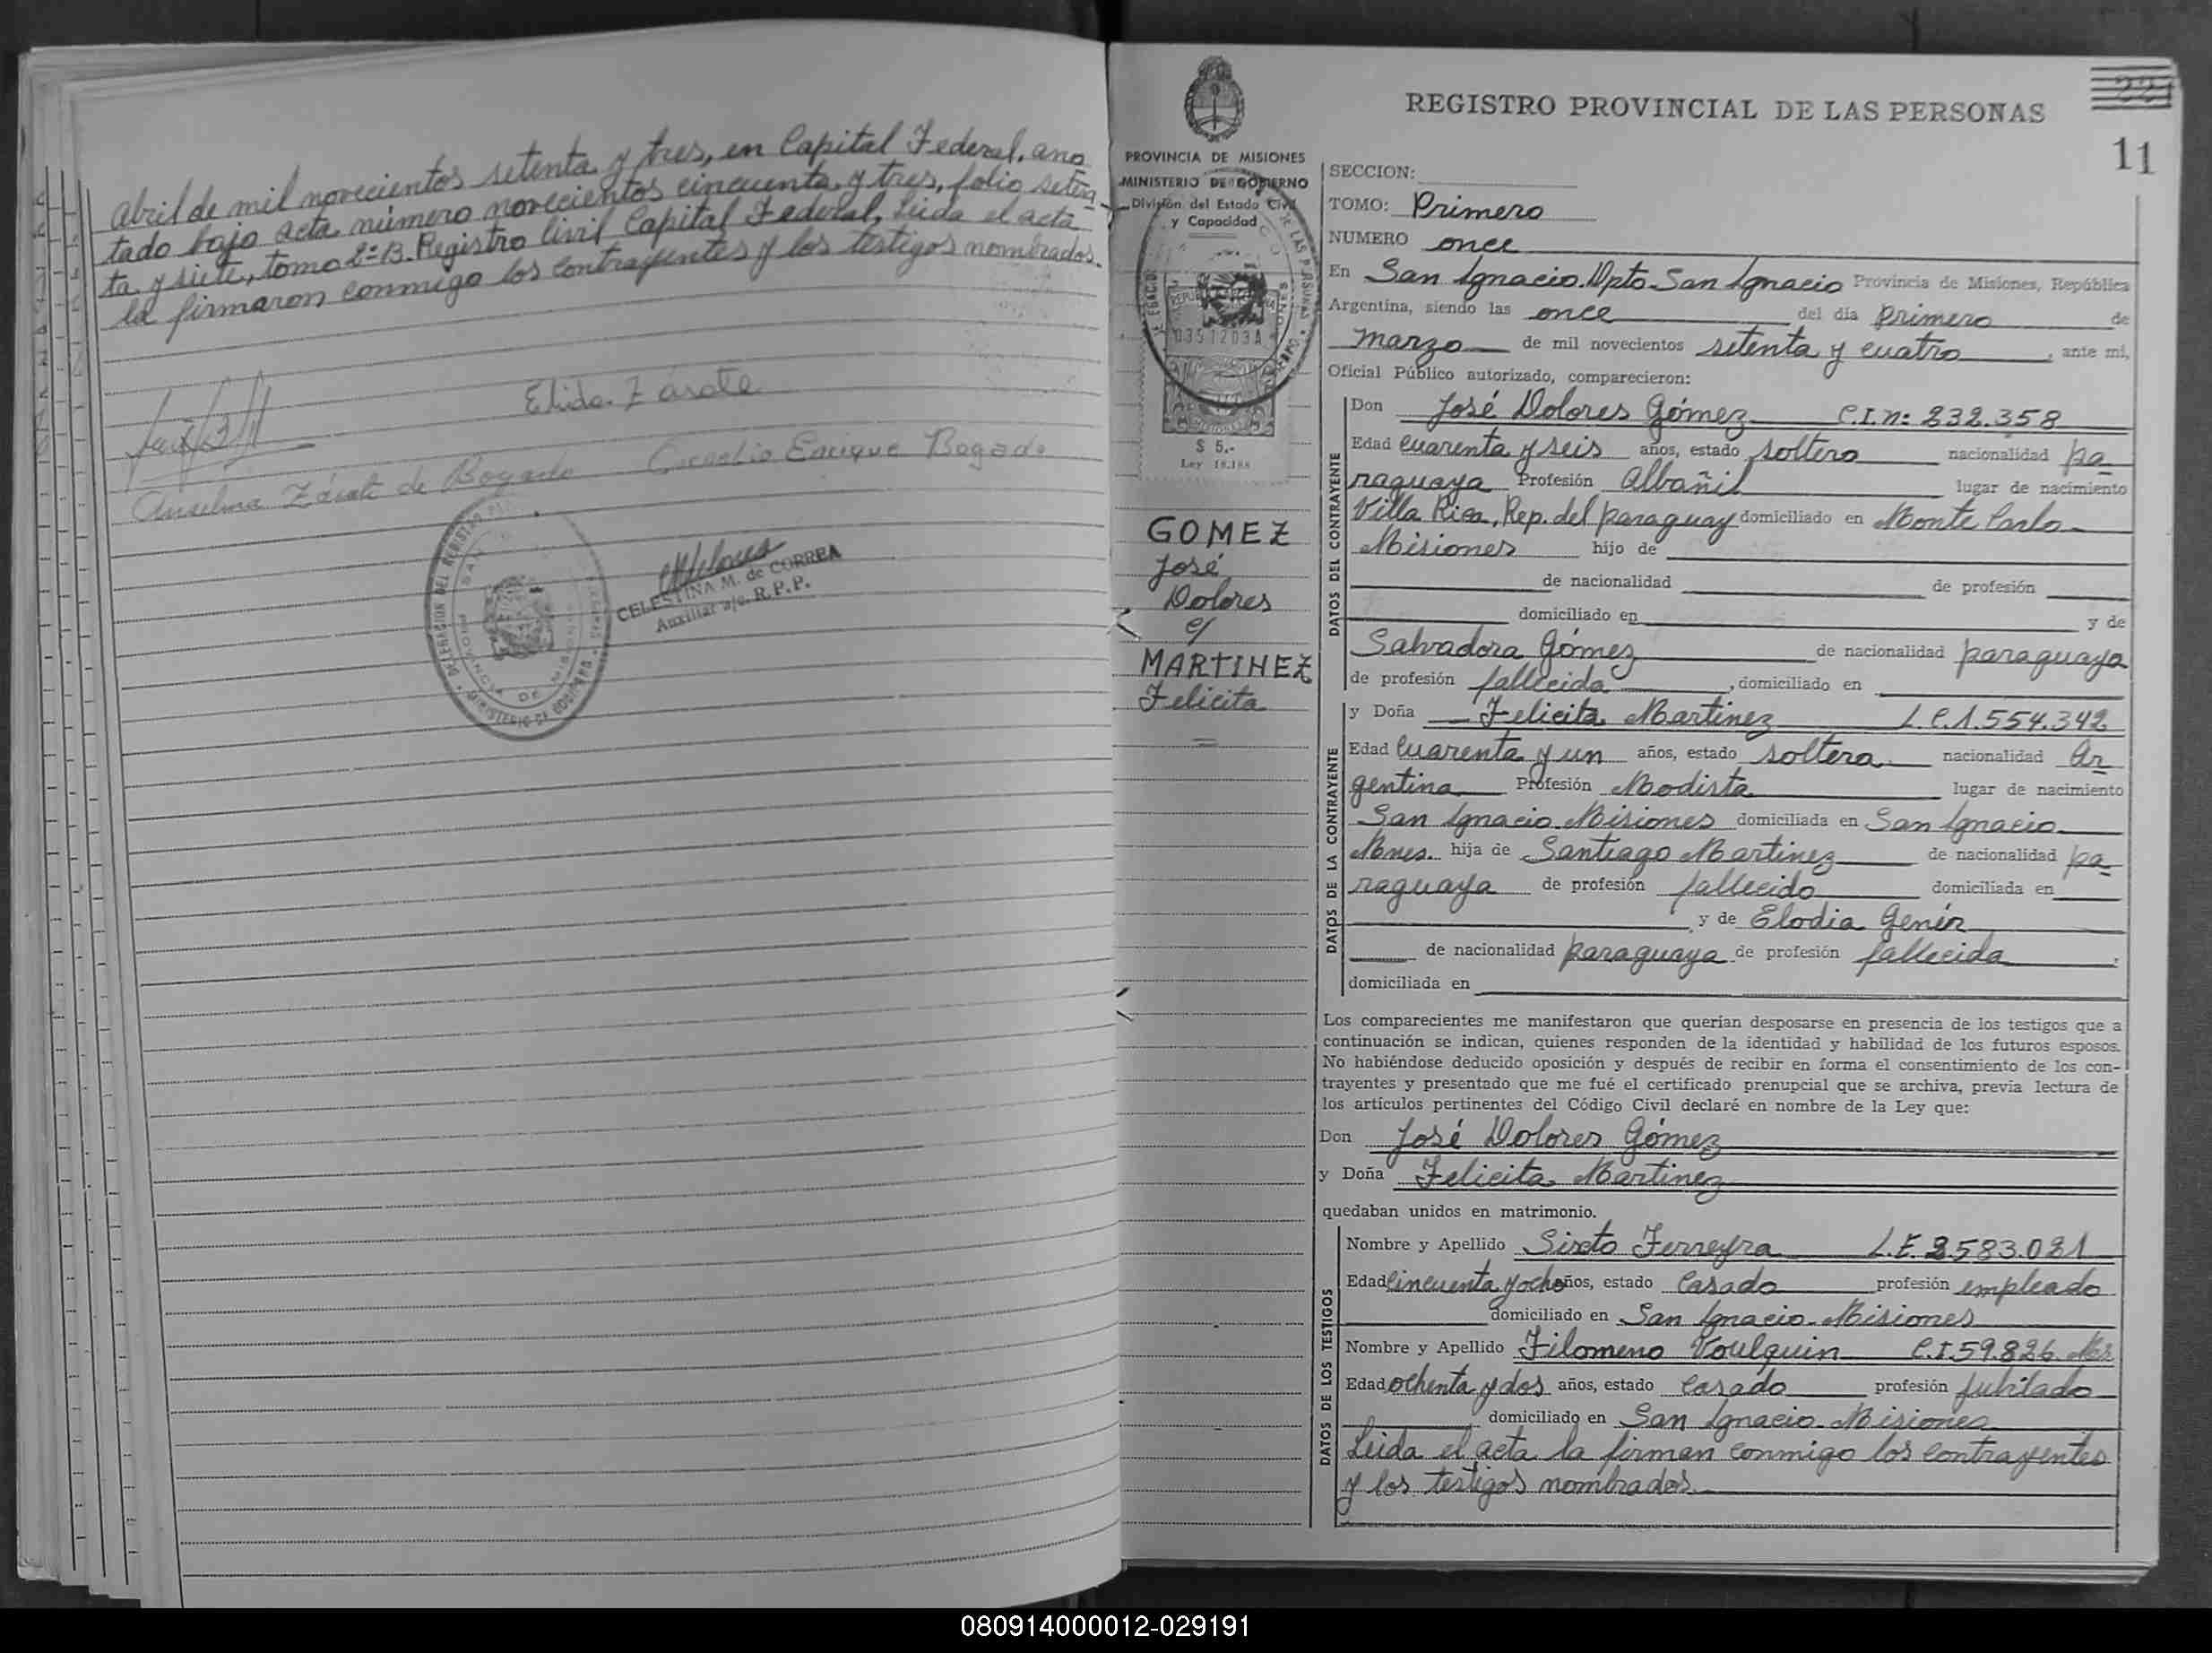 abril de mil novecientos setenta y tres, en Capital Federal, ano
tado bajo acta número novecientos cincuenta y tres, folio seten
ta y siete, tomo 2º B. Registro Civil Capital Federal, Leída el acta
la firmaron conmigo los contrayentes y los testigos nombrados.
Elida Zárate
Anselma Zárate de Bogado Enrique Bogado
CELESTINA M. de CORREA
Auxiliar a/c. R.P.P.
PROVINCIA DE MISIONES
MINISTERIO DE GOBIERNO
División del Estado Civil
y Capacidad
0351203A
$ 5.-
Ley 18.188
GOMEZ
José
Dolores
c/
MARTINEZ
Felicita
REGISTRO PROVINCIAL DE LAS PERSONAS
221
11
SECCION:
TOMO: Primero
NUMERO once
En San Ignacio. Dpto. San Ignacio Provincia de Misiones, República
Argentina, siendo las once del día primero de
marzo de mil novecientos setenta y cuatro, ante mi,
Oficial Público autorizado, comparecieron:
DATOS DEL CONTRAYENTE
Don José Dolores Gómez C.I.n: 232.358
Edad cuarenta y seis años, estado soltero nacionalidad pa
raguaya Profesión Albañil lugar de nacimiento
Villa Rica, Rep. del paraguay domiciliado en Monte Carlo
Misiones hijo de
de nacionalidad de profesión
domiciliado en y de
Salvadora Gómez de nacionalidad paraguaya
de profesión fallecida, domiciliado en
DATOS DE LA CONTRAYENTE
y Doña Felicita Martinez L.C.1.554.342
Edad cuarenta y un años, estado soltera nacionalidad Ar
gentina Profesión Modista lugar de nacimiento
San Ignacio Misiones domiciliada en San Ignacio
Mnes. hija de Santiago Martinez de nacionalidad pa
raguaya de profesión fallecido domiciliada en
y de Elodia Genér
de nacionalidad paraguaya de profesión fallecida,
domiciliada en
Los comparecientes me manifestaron que querían desposarse en presencia de los testigos que a
continuación se indican, quienes responden de la identidad y habilidad de los futuros esposos.
No habiéndose deducido oposición y después de recibir en forma el consentimiento de los con-
trayentes y presentado que me fué el certificado prenupcial que se archiva, previa lectura de
los artículos pertinentes del Código Civil declaré en nombre de la Ley que:
Don José Dolores Gómez
y Doña Felicita Martinez
quedaban unidos en matrimonio.
DATOS DE LOS TESTIGOS
Nombre y Apellido Sixto Ferreyra L.E. 2583.021
Edad cincuenta y ocho años, estado Casado profesión empleado
domiciliado en San Ignacio. Misiones
Nombre y Apellido Filomeno Voulquin C.I.59.826
Edad ochenta y dos años, estado casado profesión jubilado
domiciliado en San Ignacio. Misiones
Leida el acta la firman conmigo los contrayentes
y los testigos nombrados.
080914000012-029191